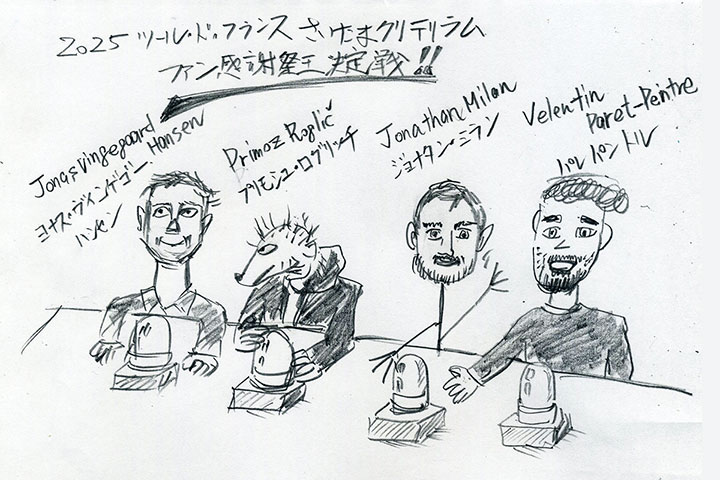 2025 ツール・ド・フランス さいたまクリテリウム
ファン感謝祭王決定戦!!
Jonas Vingegaard
Hansen
ヨナス・ヴィンゲゴー・
ハンセン
Primoz Roglič
プリモシュ・ログリッチ
Jonathan Milan
ジョナタン・ミラン
Valentin
Paret-Peintre
パレパントル